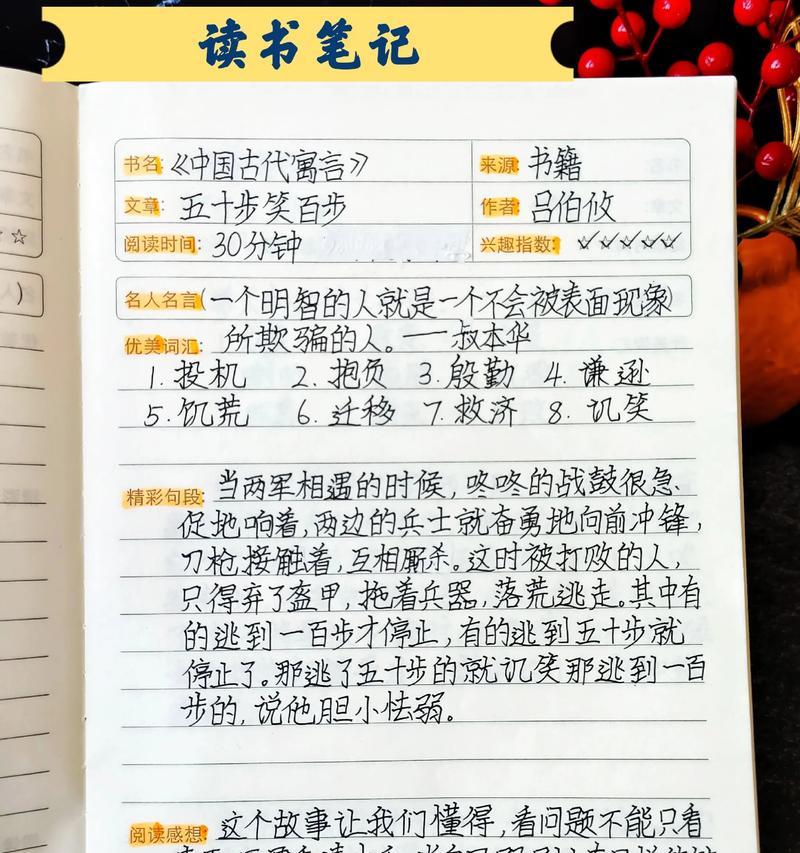 读书笔记
书名:《中国古代寓言》 来源:书籍
文章:五十步笑百步 作者:吕伯攸
阅读时间:30分钟 兴趣指数:☆☆☆☆☆
名人名言(一个明智的人就是一个不会被表面现象)
优美词汇:所欺骗的人。——叔本华
1.投机 2.抱负 3.殷勤 4.谦逊
5.饥荒 6.迁移 7.救济 8.讥笑
精彩句段:当两军相遇的时候,咚咚的战鼓很急、
促地响着,两边的兵士就奋勇地向前冲锋,
刀枪接触着,互相厮杀。这时被打败的人,
只得弃了盔甲,拖着兵器,落荒逃走。其中有
的逃到一百步才停止,有的逃到五十步就
停止了。那逃了五十步的就讥笑那逃到一百
步的,说他胆小怯弱。
阅读感想:这个故事让我们懂得,看问题不能只看